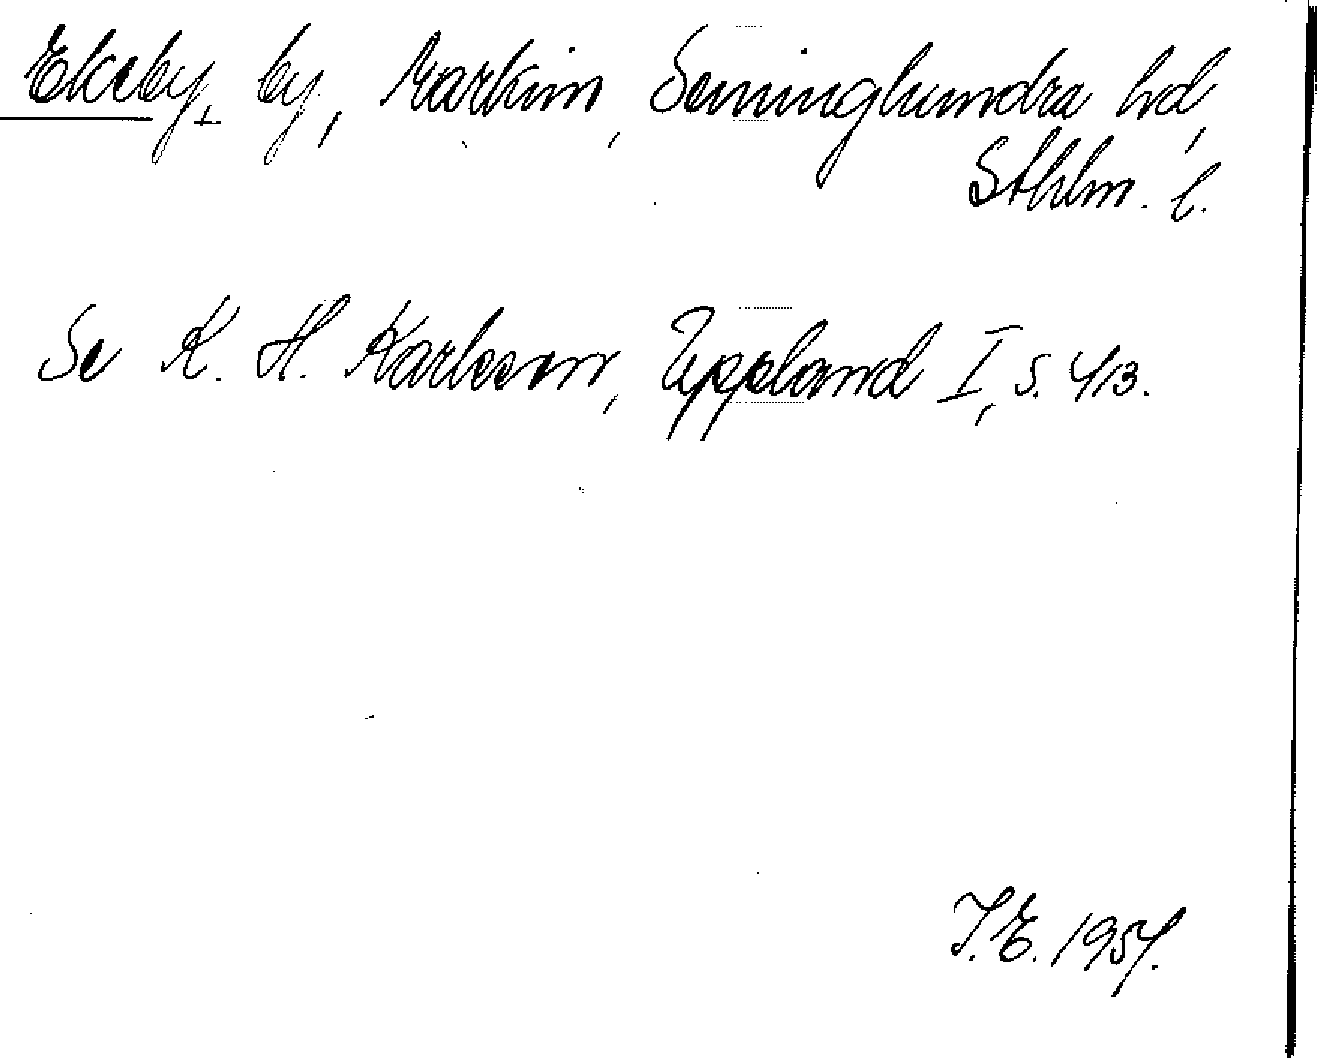 Ekeby, by, Markim, Seminghundra hd,
Sthlm. l.
Se K. H. Karlsson, Uppland I, s. 413.
I. E. 1957.